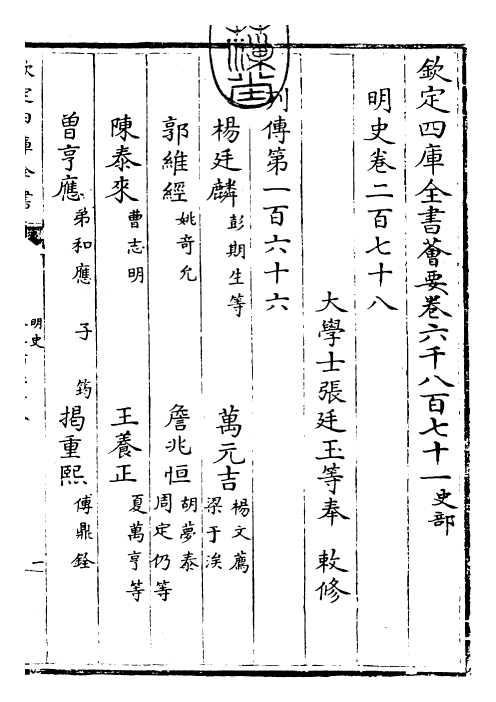 欽定四庫全書薈要卷六千八百七十一史部
明史卷二百七十八
大學士張廷玉等奉 敕修
列傳第一百六十六
楊廷麟 彭期生等 萬元吉 楊文薦 梁于涘
郭維經 姚奇允 詹兆恒 胡夢泰 周定仍等
陳泰來 曹志明 王養正 夏萬亨等
曾亨應 弟和應 子筠 揭重熙 傅鼎銓
欽定四庫全書
明史
一